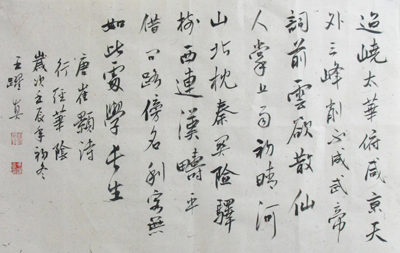 迢嶢太華俯咸京天
外三峰削不成武帝
詞前雲欲散仙
人掌上雨初晴河
山北枕秦關險驛
樹西連漢疇平
借問路傍名利客無
如此處學長生
唐崔顥詩
行經華陰
歲次壬辰年初冬
王躍真